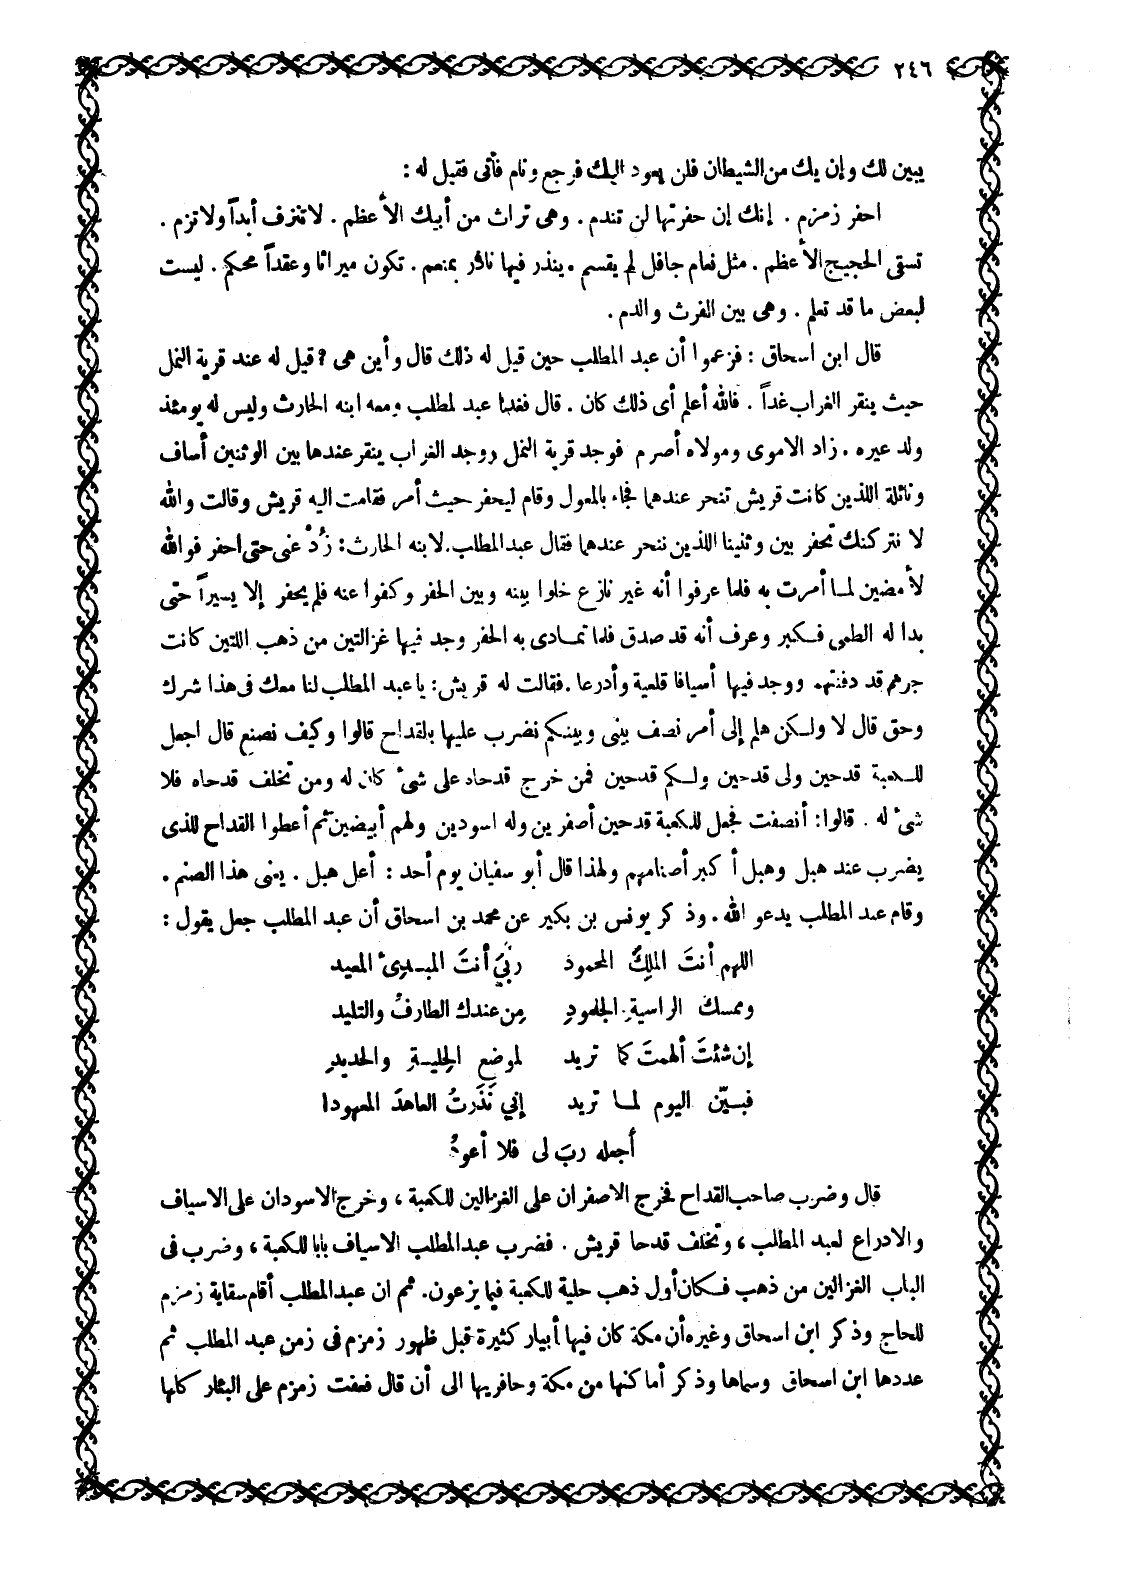 ٢٤٦
يبين لك وإن يك من الشيطان فلن يعود اليك فرجع ونام فأتى فقيل له :
احفر زمزم . إنك إن حفرتها لن تندم . وهى تراث من أبيك الأعظم . لا تنزف أبداً ولا تزم .
تسقى الحجيج الأعظم . مثل نعام جافل لم يقسم . ينذر فيها ناذر بمنعم . تكون ميراثا وعقداً محكم . ليست
لبعض ما قد تعلم . وهى بين الفرث والدم .
قال ابن اسحاق : فزعموا أن عبد المطلب حين قيل له ذلك قال وأين هى ؟ قيل له عند قرية النمل
حيث ينقر الغراب غداً . فالله أعلم أى ذلك كان . قال فغدا عبد لمطلب ومعه ابنه الحارث وليس له يومئذ
ولد غيره . زاد الاموى ومولاه أصرم فوجد قرية النمل ووجد الغراب ينقر عندها بين الوثنين أساف
ونائلة اللذين كانت قريش تنحر عندهما فجاء بالمعول وقام ليحفر حيث أمر فقامت اليه قريش وقالت والله
لا نتركنك تحفر بين وثنينا اللذين ننحر عندهما فقال عبد المطلب لابنه الحارث : زُدْ عنى حتى احفر فوالله
لأمضين لما أمرت به فلما عرفوا أنه غير نازع خلوا بينه وبين الحفر وكفوا عنه فلم يحفر إلا يسيراً حتى
بدا له الطمى فكبر وعرف أنه قد صدق فلما تمادى به الحفر وجد فيها غزالتين من ذهب اللتين كانت
جرهم قد دفنتهما ووجد فيها أسيافا قلعية وأدرعا . فقالت له قريش : يا عبد المطلب لنا معك فى هذا شرك
وحق قال لا ولكن هلم إلى أمر نصف بينى وبينكم نضرب عليها بالقداح قالوا وكيف نصنع قال اجعل
للكعبة قدحين ولى قدحين ولكم قدحين فمن خرج قدحاه على شىء كان له ومن تخلف قدحاه فلا
شىء له . قالوا : أنصفت فجعل للكعبة قدحين أصفرين وله اسودين ولهم أبيضين ثم أعطوا القداح للذى
يضرب عند هبل وهبل أكبر أصنامهم ولهذا قال أبو سفيان يوم أحد : أعل هبل . يعنى هذا الصنم .
وقام عبد المطلب يدعو الله . وذكر يونس بن بكير عن محمد بن اسحاق أن عبد المطلب جعل يقول :
اللهم أنتَ الملِكُ المحمود ربّي أنتَ المبدىء المعيد
وممسك الراسيةِ الجلمودِ مِن عندك الطارفُ والتليد
إن شئتَ ألهمتَ كما تريد لموضع الحِليةِ والحديدِ
فبيّن اليوم لما تريد إني نَذَرتُ العاهدَ المعهودا
أجعله ربَ لى فلا أعودُ
قال وضرب صاحب القداح فخرج الاصفران على الغزالين للكعبة ، وخرج الاسودان على الاسياف
والادراع لعبد المطلب ، وتخلف قدحا قريش . فضرب عبد المطلب الاسياف بابا للكعبة ، وضرب فى
الباب الغزالين من ذهب فكان أول ذهب حلية للكعبة فيما يزعمون . ثم ان عبد المطلب أقام سقاية زمزم
للحاج وذكر ابن اسحاق وغيره أن مكة كان فيها أبيار كثيرة قبل ظهور زمزم فى زمن عبد المطلب ثم
عددها ابن اسحاق وسماها وذكر أماكنها من مكة وحافريها الى أن قال فعفت زمزم على البئار كلها